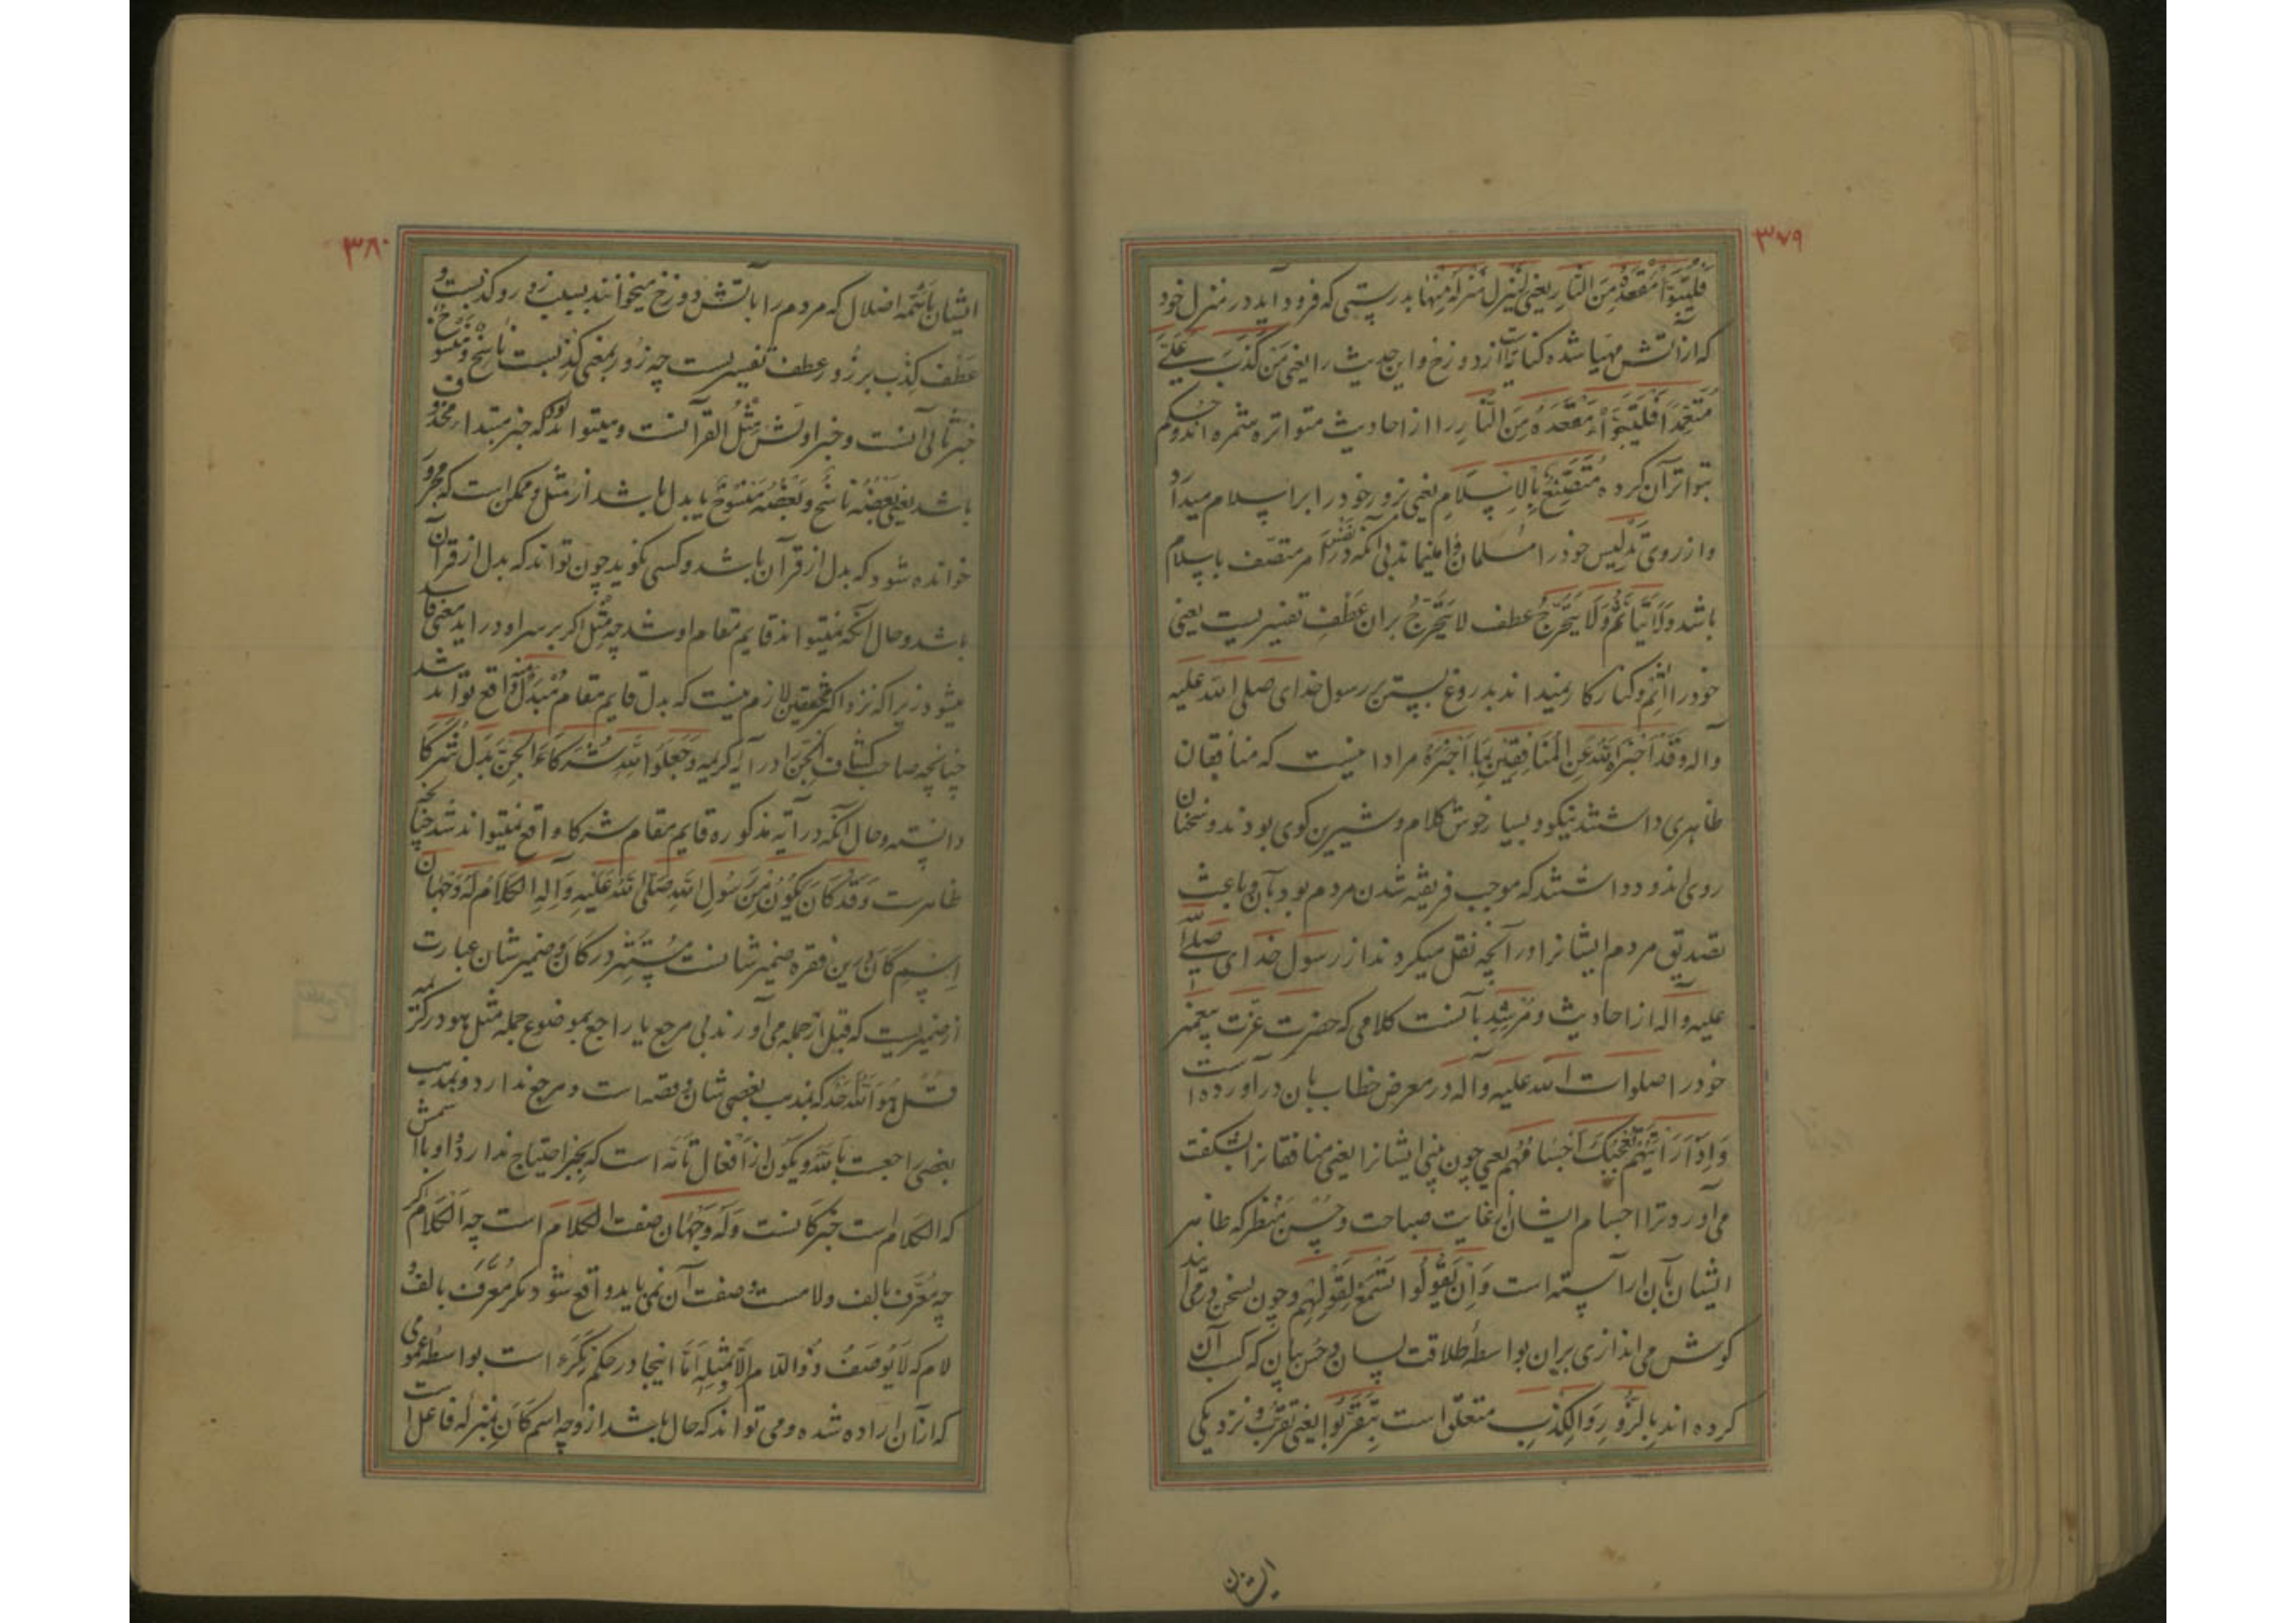 ۳۷۹
فَلْیَتَبَوَّأْ مَقْعَدَهُ مِنَ النَّارِ یعنی لَیَنْزِل مَنْزِلَهُ مِنْهَا بدرستی که فرود آید در منزل خود
که از آتش مهیا شده کنایت از دوزخ و این حدیث را یعنی مَن کَذَبَ عَلَیَّ
مُتَعَمِّداً فَلْیَتَبَوَّأْ مَقْعَدَهُ مِنَ النَّارِ را از احادیث متواتره شمره اند و حکم
بتواتر آن کرده مُتَصَنِّعٌ بِالْاِسْلَامِ یعنی بزور خود را بر اسلام میدارد
و از روی تدلیس خود را مسلمان وا مینماید بی آنکه در نفس امر متصف باسلام
باشد وَلَا یَتَأَثَّمُ وَلَا یَتَحَرَّجُ عطف لا یَتَحَرَّجُ بر ان عَطْفِ تفسیریست یعنی
خود را آثم و کناه کار نمیداند بدروغ بستن بر رسول خدای صلی الله علیه
وآله وَقَدْ اَخْبَرَاللهُ عَنِ الْمُنَافِقِیْنَ بِمَا اَخْبَرَهُ مراد اینست که منافقان
ظاهری داشتند نیکو و بسیار خوش کلام و شیرین کوی بودند و سخنان
روی اندود داشتند که موجب فریفته شدن مردم بود بآن و باعث
تصدیق مردم ایشانرا در آنچه نقل میکردند از رسول خدای صلی الله
علیه وآله از احادیث و مُرشِد بآنست کلامی که حضرت عزت پیغمبر
خود را صلوات الله علیه وآله در معرض خطاب بان در آورده است
وَاِذَا رَأَیْتَهُمْ تُعْجِبُکَ اَجْسَامُهُم یعنی چون بینی ایشانرا یعنی منافقانرا بشکفت
می آورد ترا اجسام ایشان از غایت صباحت و حُسن مَنْظَر که ظاهر
ایشان بآن آراسته است وَاِنْ یَقُولُوا تَسْمَعْ لِقَوْلِهِم و چون بسخن در می آیند
کوش می اندازی بر ان بواسطه طلاقت لسان و حُسن بیان که کسب آن
کرده اند بِالزُّورِ وَالْکِذْبِ متعلق است بِتَقَرَّبُوا یعنی تقرب و نزدیکی
ایشان
۳۸۰
ایشان بائمه اضلال که مردم را بآتش دوزخ میخوانند بسبب زور و کذبست و
عَطْف کِذْب بر زُور عطف تفسیریست چه زُور بمعنی کذبست ناسِخٌ وَمَنْسُوخٌ
خبر ثانی اِنَّست و خبر اولش مِثْلُ الْقُرآنست و میتواند بود که خبر مبتداء محذوف
باشد یعنی بَعْضُهُ نَاسِخٌ وَبَعْضُهُ مَنْسُوخٌ یا بدل باشد از مثل و ممکن است که مجرور
خوانده شود که بدل از قرآن باشد و کسی نکوید چون تواند که بدل از قرآن
باشد و حال آنکه نمیتواند قایم مقام او شد چه مثل اکر بر سر او در اید معنی فاسد
میشود زیرا که نزد اکثر محققین لازم نیست که بدل قایم مقام مُبْدَلٌ مِنْهُ واقع تواند شد
چنانچه صاحب کشاف الْجِنَّ را در آیه کریمه وَجَعَلُوا لِلّٰهِ شُرَکَاءَ الْجِنَّ بَدَل شُرَکَا
دانسته و حال آنکه در آیه مذکوره قایم مقام شرکا واقع نمیتواند شد چنانچه
ظاهرست وَقَدْ کَانَ یَکُوْنُ مِنْ رَسُولِ اللهِ صَلَّی اللهُ عَلَیْهِ وَآلِهِ الْکَلَامُ لَهُ وَجْهَانِ
اِسْمِ کان درین فقره ضمیر شانست مُسْتَتِر در کان و ضمیر شان عبارت
از ضمیریست که قبل از جمله می آورند بی مرجع یا راجع بموضوع جمله مثل هو در کریمه
قُلْ هُوَ اللهُ اَحَد که بمذهب بعضی شان و قصه است و مرجع ندارد و بمذهب
بعضی راجعست بالله و یکون از اَفعال تامّه است که بخبر احتیاج ندارد و او با اسمش
که الْکَلام است خبر کانست وَلَهُ وَجْهَان صفت الکلام است چه اَلکَلام اکر
چه مُعَرَّف بالف و لامست و صفت آن نمی باید واقع شود مکر مُعَرَّف بالف و
لام که لَا یُوصَفُ ذُو اللَّامِ اِلَّا بِمِثْلِهِ اَمَّا اینجا در حکم نکَرَه است بواسطه عمومی
که از آن اراده شده و می تواند که حال باشد از وجه اسم کَانَ بمنزله فاعل است